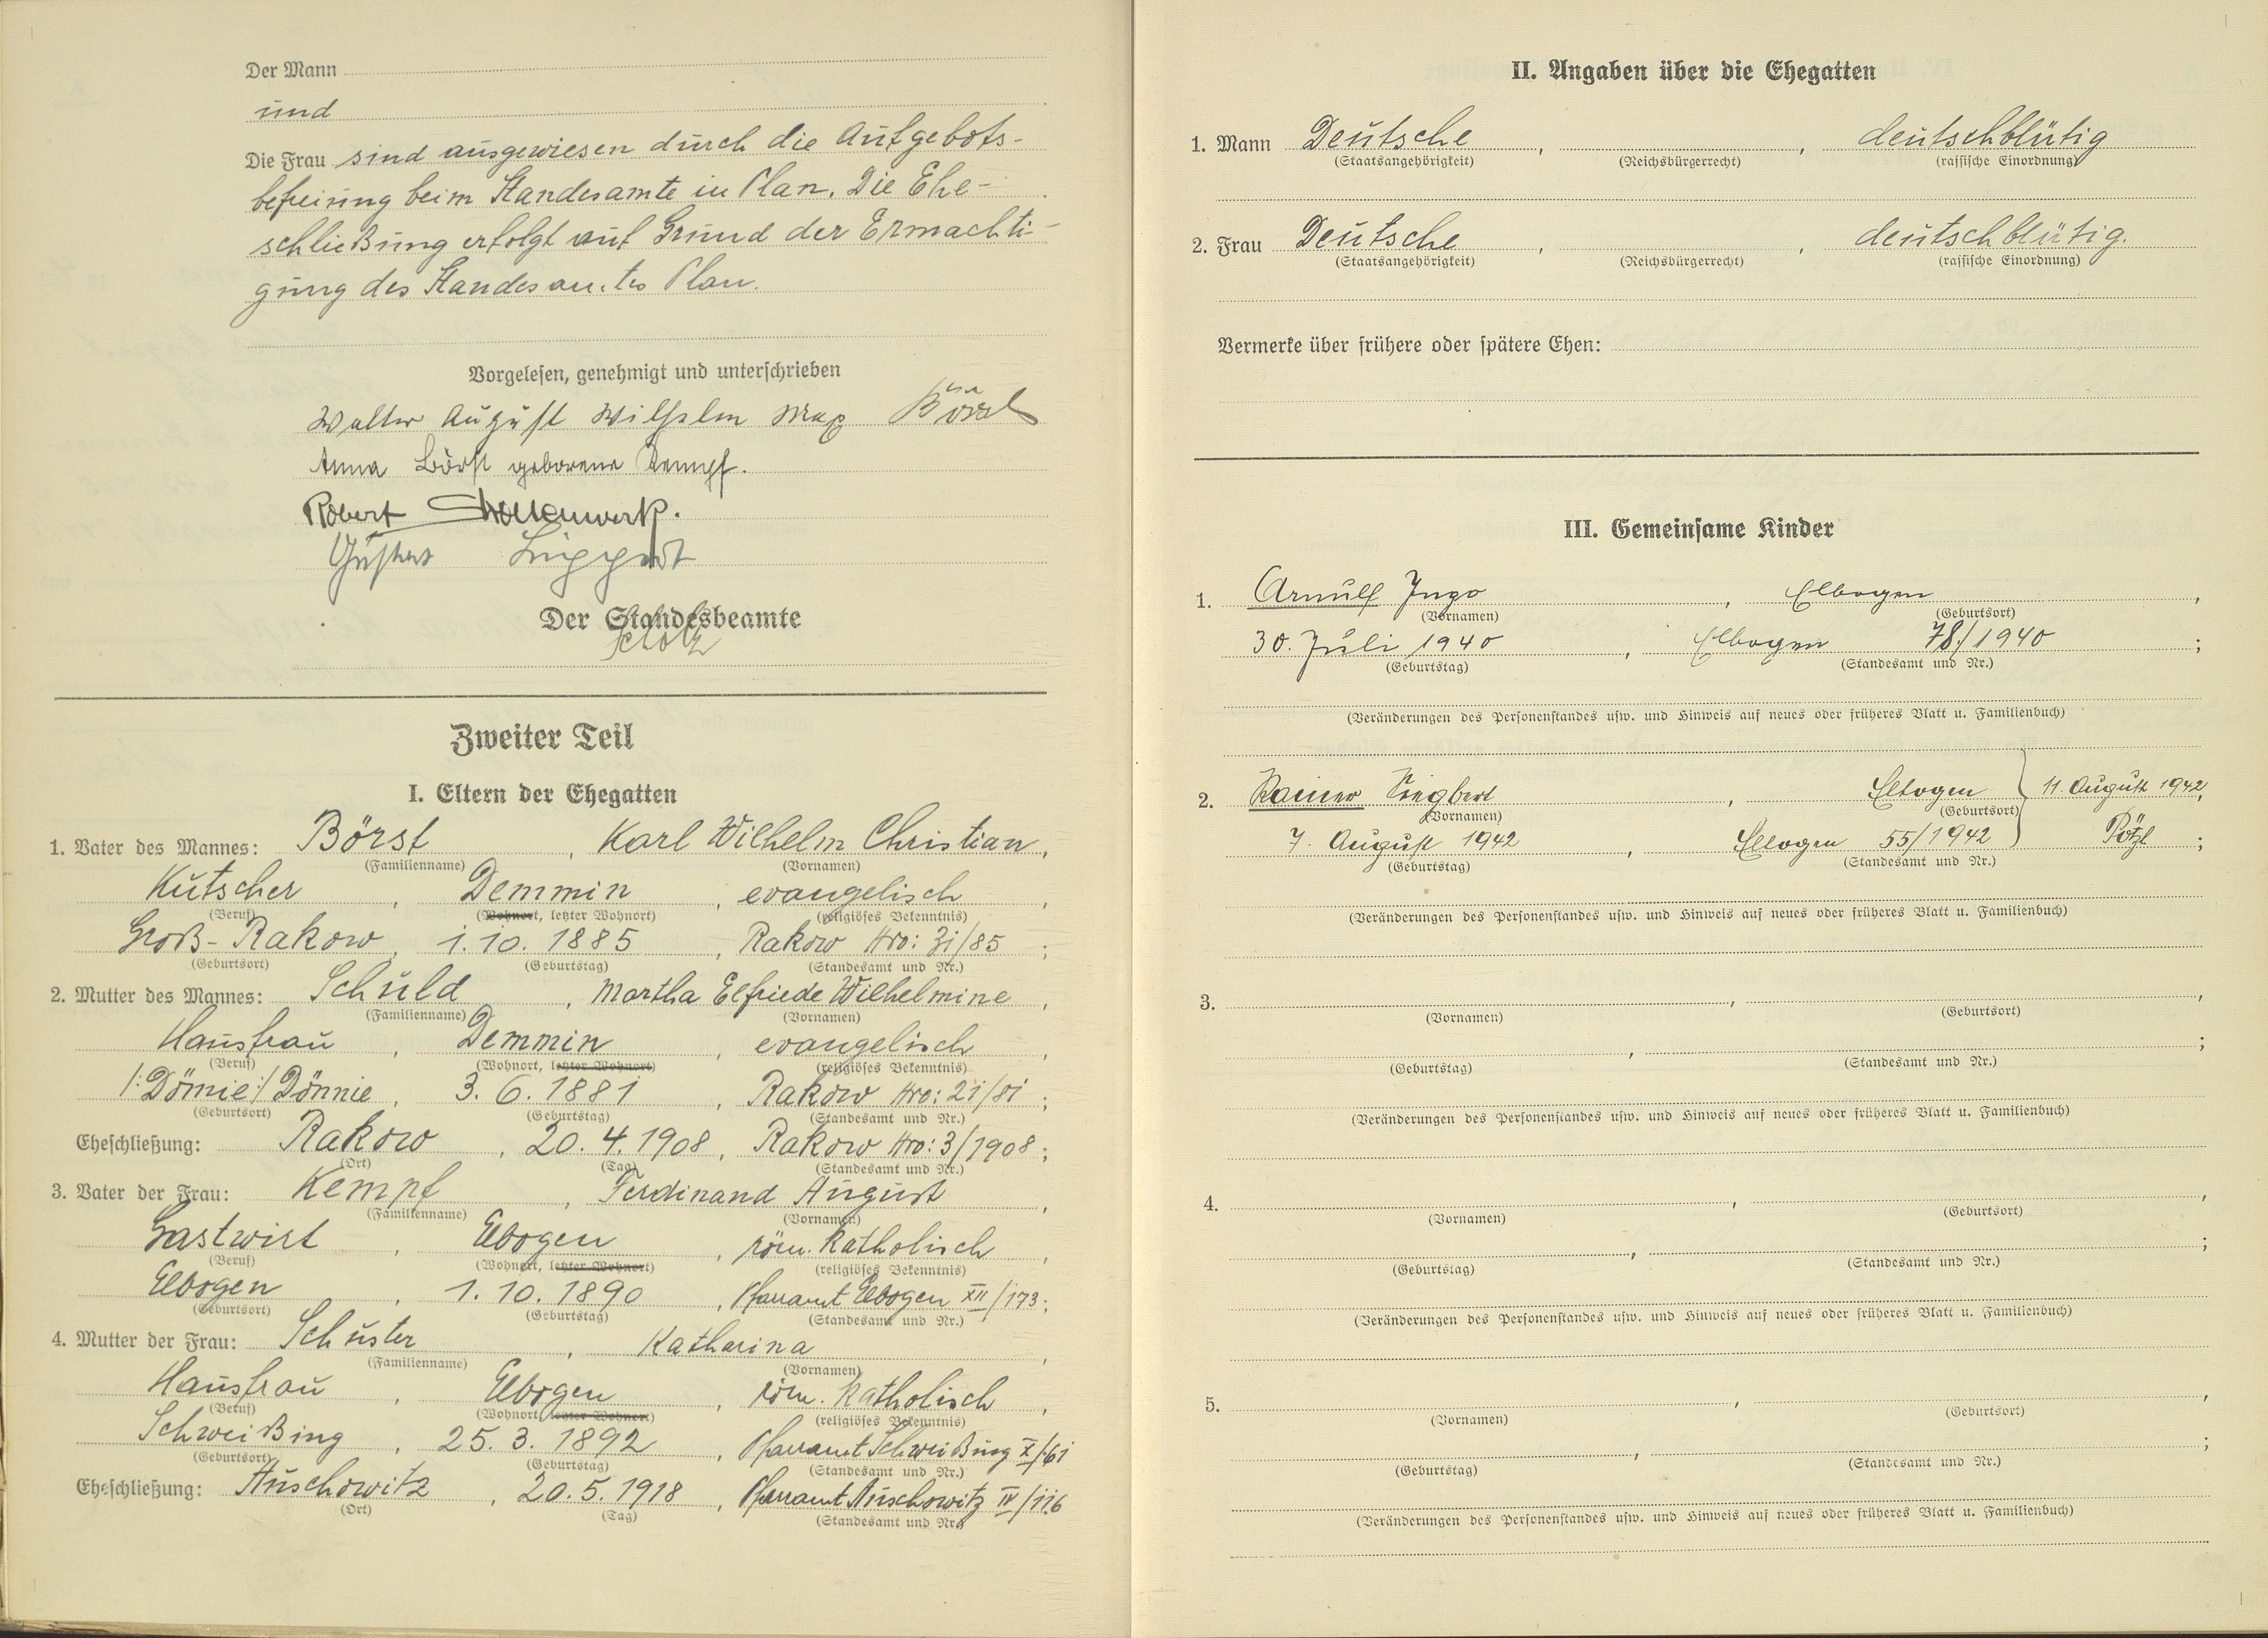 Der Mann
und
Die Frau sind ausgewiesen durch die Aufgebots-
befreiung beim Standesamte in Plan. Die Ehe-
schließung erfolgt auf Grund der Ermächti-
gung des Standesamtes Plan.
Vorgelesen, genehmigt und unterschrieben
Walter August Wilhelm Max Börst
Anna Börst geborene Kempf.
Robert
Gustav Lippert
Der Standesbeamte
Scholz
Zweiter Teil
I. Eltern der Ehegatten
1. Vater des Mannes: Börst, Karl Wilhelm Christian,
(Familienname) (Vornamen)
Kutscher, Demmin, evangelisch,
(Beruf) (Wohnort, letzter Wohnort) (religiöses Bekenntnis)
Groß-Rakow, 1.10.1885, Rakow Nro: 31/85;
(Geburtsort) (Geburtstag) (Standesamt und Nr.)
2. Mutter des Mannes: Schuld, Martha Elfriede Wilhelmine,
(Familienname) (Vornamen)
Hausfrau, Demmin, evangelisch,
(Beruf) (Wohnort, letzter Wohnort) (religiöses Bekenntnis)
/:Dömie:/ Dönnie, 3.6.1881, Rakow Nro: 21/81;
(Geburtsort) (Geburtstag) (Standesamt und Nr.)
Eheschließung: Rakow, 20.4.1908, Rakow Nro: 3/1908;
(Ort) (Tag) (Standesamt und Nr.)
3. Vater der Frau: Kempf, Ferdinand August,
(Familienname) (Vornamen)
Gastwirt, Elbogen, röm. katholisch,
(Beruf) (Wohnort, letzter Wohnort) (religiöses Bekenntnis)
Elbogen, 1.10.1890, Pfarramt Elbogen XII/173;
(Geburtsort) (Geburtstag) (Standesamt und Nr.)
4. Mutter der Frau: Schuster, Katharina,
(Familienname) (Vornamen)
Hausfrau, Elbogen, röm. katholisch,
(Beruf) (Wohnort, letzter Wohnort) (religiöses Bekenntnis)
Schweißing, 25.3.1892, Pfarramt Schweißing X/61
(Geburtsort) (Geburtstag) (Standesamt und Nr.)
Eheschließung: Auschowitz, 20.5.1918, Pfarramt Auschowitz IV/116
(Ort) (Tag) (Standesamt und Nr.)
II. Angaben über die Ehegatten
1. Mann Deutsche, , deutschblütig
(Staatsangehörigkeit) (Reichsbürgerrecht) (rassische Einordnung)
2. Frau Deutsche, , deutschblütig.
(Staatsangehörigkeit) (Reichsbürgerrecht) (rassische Einordnung)
Vermerke über frühere oder spätere Ehen:
III. Gemeinsame Kinder
1. Arnulf Ingo, Elbogen,
(Vornamen) (Geburtsort)
30. Juli 1940, Elbogen 78/1940;
(Geburtstag) (Standesamt und Nr.)
(Veränderungen des Personenstandes usw. und Hinweis auf neues oder früheres Blatt u. Familienbuch)
2. Rainer Siegbert, Elbogen 11. August 1942,
(Vornamen) (Geburtsort)
7. August 1942, Elbogen 55/1942 Pötzl;
(Geburtstag) (Standesamt und Nr.)
(Veränderungen des Personenstandes usw. und Hinweis auf neues oder früheres Blatt u. Familienbuch)
3. , ,
(Vornamen) (Geburtsort)
, ;
(Geburtstag) (Standesamt und Nr.)
(Veränderungen des Personenstandes usw. und Hinweis auf neues oder früheres Blatt u. Familienbuch)
4. , ,
(Vornamen) (Geburtsort)
, ;
(Geburtstag) (Standesamt und Nr.)
(Veränderungen des Personenstandes usw. und Hinweis auf neues oder früheres Blatt u. Familienbuch)
5. , ,
(Vornamen) (Geburtsort)
, ;
(Geburtstag) (Standesamt und Nr.)
(Veränderungen des Personenstandes usw. und Hinweis auf neues oder früheres Blatt u. Familienbuch)